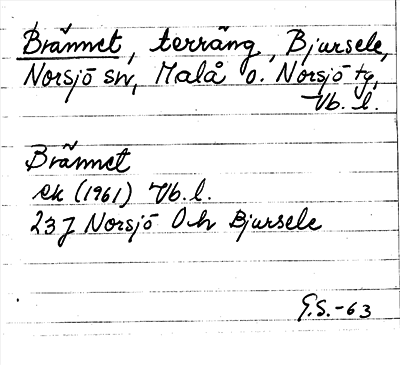 Brännet, terräng, Bjursele,
Norsjö sn, Malå o. Norsjö tg,
Vb. l.
Brännet
ek (1961) Vb. l.
23J Norsjö Och Bjursele
G.S.-63